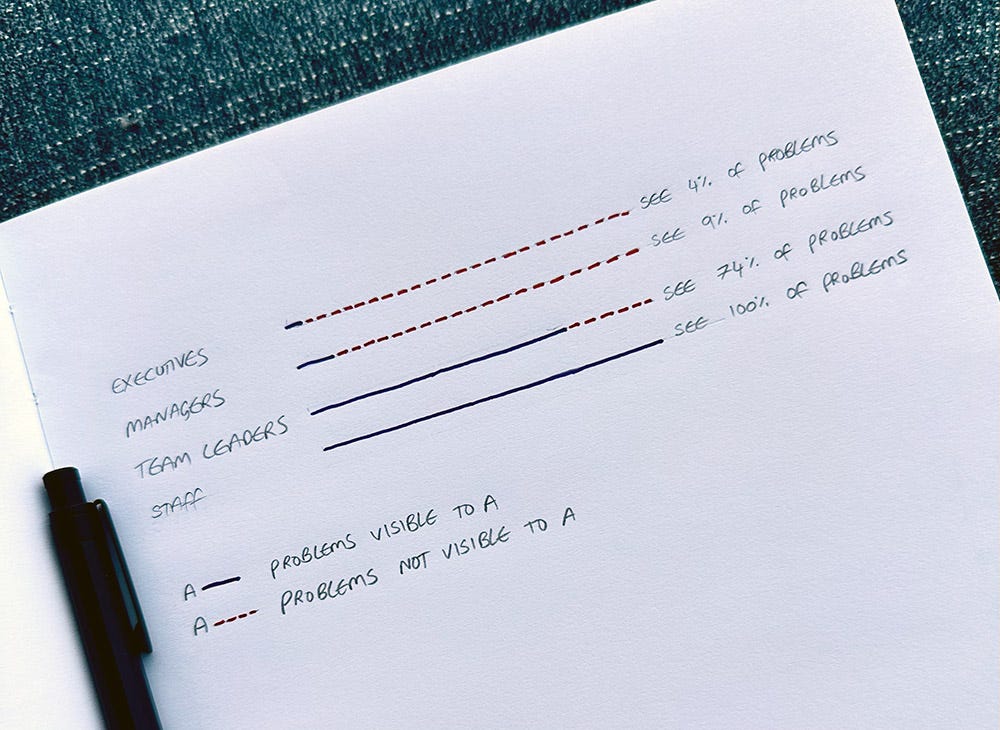 EXECUTIVES SEE 4% OF PROBLEMS
MANAGERS SEE 9% OF PROBLEMS
TEAM LEADERS SEE 74% OF PROBLEMS
STAFF SEE 100% OF PROBLEMS
A PROBLEMS VISIBLE TO A
A PROBLEMS NOT VISIBLE TO A